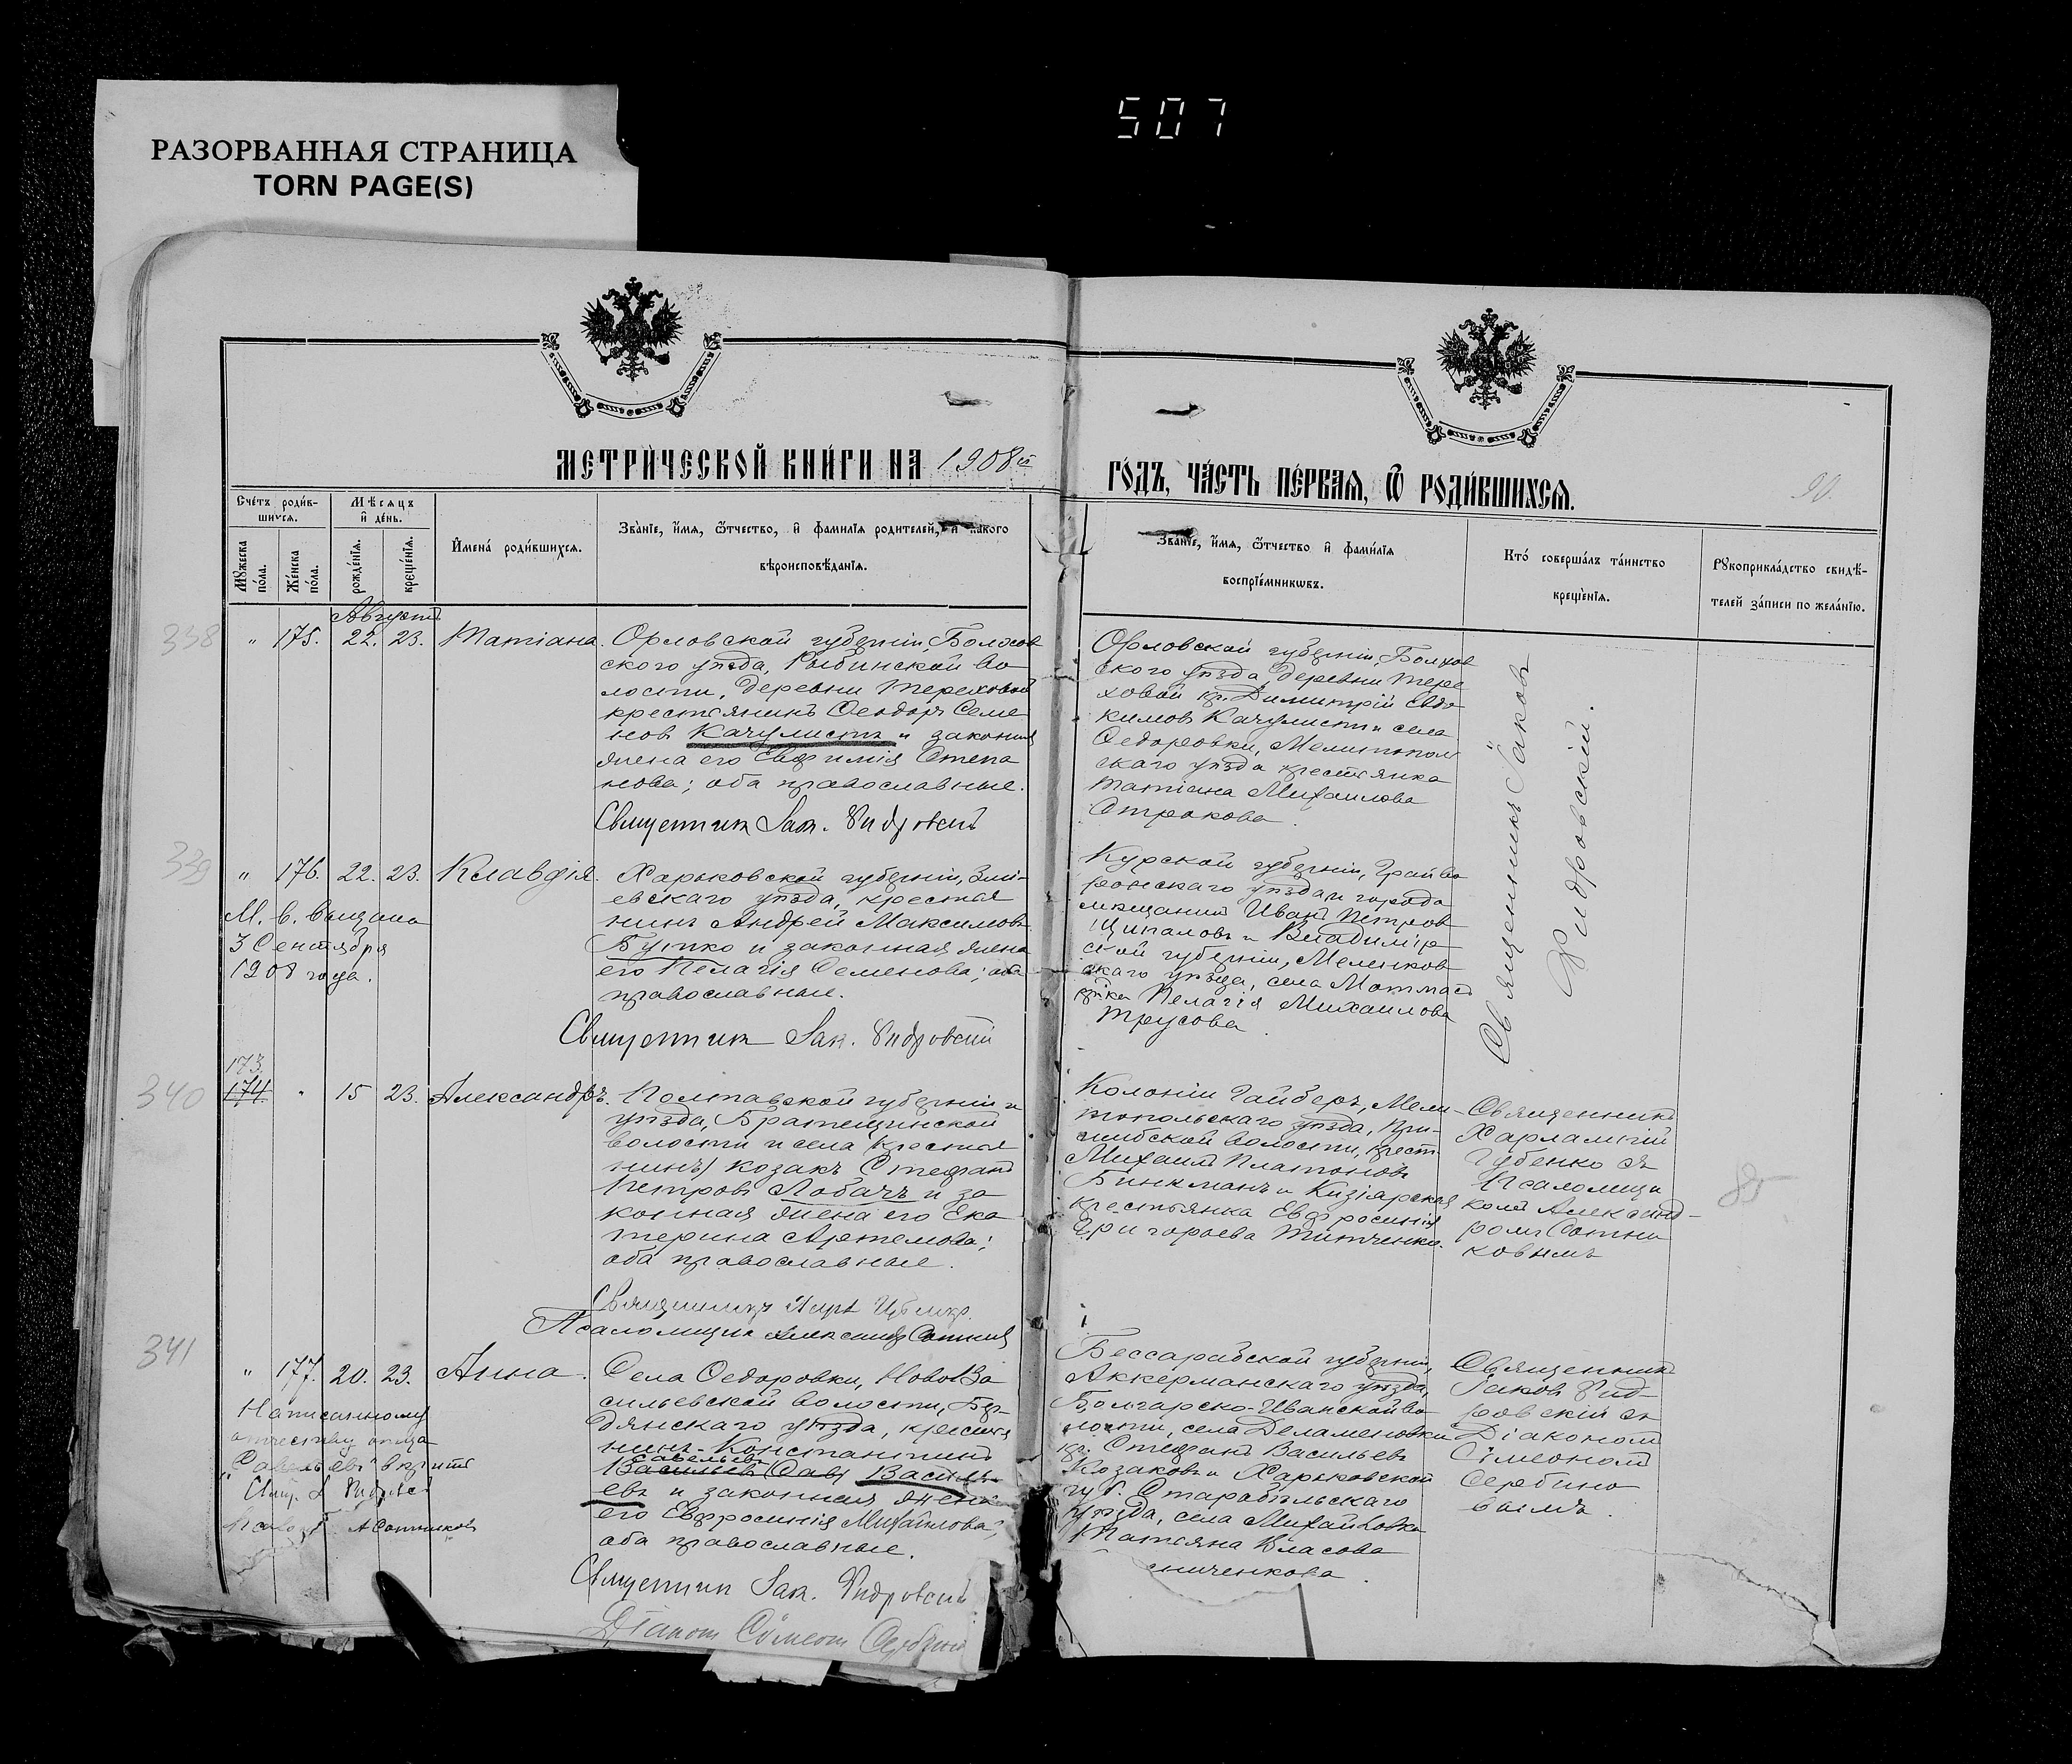 РАЗОРВАННАЯ СТРАНИЦА
TORN PAGE(S)
507
МЕТРИ́ЧЕСКОЙ КНИ́ГИ НА 1908й
ГО́ДЪ, ЧА́СТЬ ПЕ́РВАЯ, Ѿ РОДИ́ВШИХСЯ.
90.
Сче́тъ роди́в-
шихся.
Мѣ́сяцъ
и҆ де́нь.
Мꙋ́жеска по́ла.
Же́нска по́ла.
рожде́нїя.
креще́нїя.
И҆мена̀ роди́вшихся.
Зва́нїе, и҆́мя, ѻ҆́тчество, и҆ фами́лїя роди́телей, и҆ како́го
вѣроисповѣ́данїя.
Зва́нїе, и҆́мя, ѻ҆́тчество и҆ фами́лїя
воспрїе́мникѡвъ.
Кто̀ соверша́лъ та́инство
креще́нїя.
Рꙋкоприкла́дство свидѣ́-
телей за́писи по жела́нїю.
338
Августъ
" 175. 22. 23. Татіана.
Орловской губерніи, Болхов
скаго уѣзда, Рыбинской во
лости, деревни Тереховой
крестьянинъ Ѳеодоръ Семе
новъ Качулистъ и законная
жена его Евфимія Степа
нова; оба православные.
Священникъ Іак. Фидровскій
Орловской губерніи, Болхов
скаго уѣзда, деревни Тере
ховой кр. Димитрій Евдо
кимовъ Качулистъ и села
Ѳедоровки, Мелитополь
скаго уѣзда крестьянка
Татіана Михаилова
Строкова.
Священникъ Іаковъ
Фидровскій.
339
" 176. 22. 23. Клавдія.
М. в. выдана
3 Сентября
1908 года.
Харьковской губерніи, Змі-
евскаго уѣзда, крестья
нинъ Андрей Максимовъ
Бутко и законная жена
его Пелагія Семенова; оба
православные.
Священникъ Іак. Фидровскій
Курской губерніи, Грайво
ронскаго уѣзда и города
мѣщанинъ Иванъ Петров
Владимір
ской губерніи, Меленков
скаго уѣзда, села
кр-ка Пелагія Михаилова
Трусова.
340
173.
174. " 15 23. Александръ.
Полтавской губерніи и
уѣзда, Братешинской
волости и села (крестья
нинъ) козакъ Стефанъ
Петровъ Лобачъ и за
конная жена его Ека
терина Артемова;
оба православные.
Священникъ
Псаломщикъ Александръ Сотник
Колоніи Гайберъ, Мели-
топольскаго уѣзда, При-
шибской волости, крест.
Михаилъ Платоновъ
Бинкманъ и Кизіярская
крестьянка Евфросинія
Григорьева Титченко.
Священникъ
Харлампій
Губенко съ
Псаломщи
комъ Александ-
ромъ Сотни
ковымъ
85
341
" 177. 20. 23. Анна.
Написанному
отчеству отца
"Савельевъ" вѣрить
Свящ. І Фидровс
Псалом А Сотниковъ
Села Ѳедоровки, НовоВа
сильевской волости, Бер-
дянскаго уѣзда, крестья
нинъ Константинъ
Савельевъ
Васильевъ (Сав) Василь-
евъ и законная жена
его Евфросинія Михаилова;
оба православные.
Священникъ Іак. Фидровскій
Діаконъ Сѵмеонъ Сербино
Бессарабской губерніи,
Аккерманскаго уѣзда,
Болгарско-Иванской во
лости, села Деламеновки
кр. Стефанъ Васильевъ
Козаковъ и Харьковской
губ. Старобѣльскаго
уѣзда, села Михайловки
Татьяна Власова
Священникъ
Іаковъ Фид-
ровскій съ
Діакономъ
Сѵмеономъ
Сербино
вымъ.